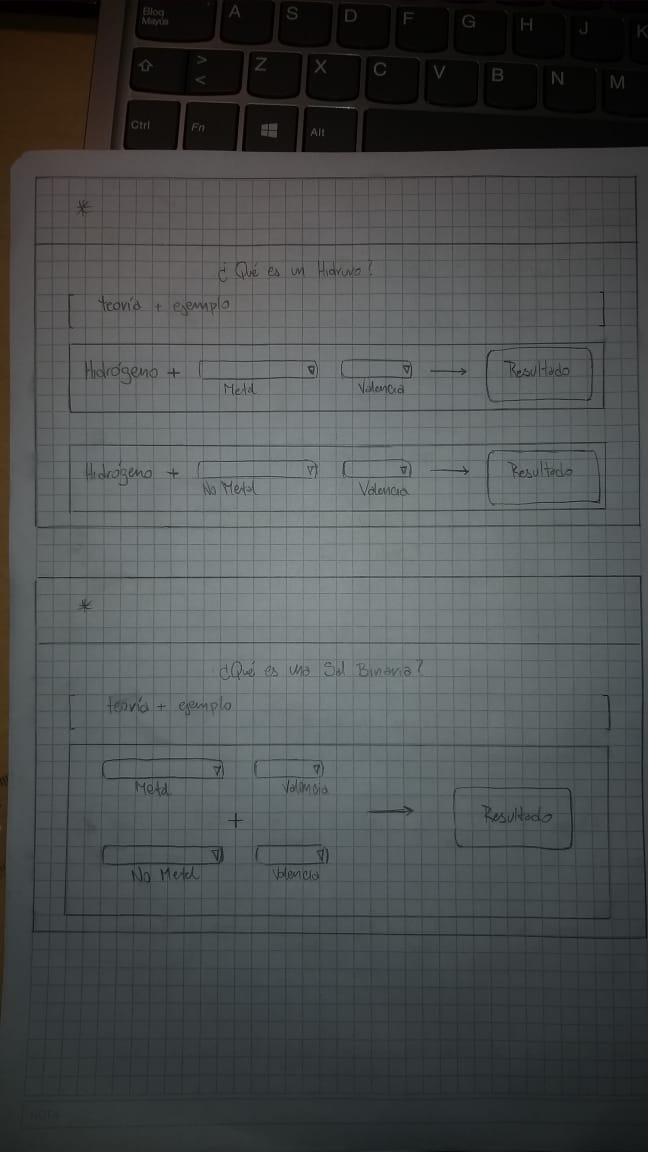 Bloq Mayús A S D F G H J K
> < Z X C V B N M
Ctrl Fn Alt
*
¿Qué es un Hidruro?
teoría + ejemplo
Hidrógeno + → Resultado
Metal Valencia
Hidrógeno + → Resultado
No Metal Valencia
*
¿Qué es una Sal Binaria?
teoría + ejemplo
Metal Valencia
+ → Resultado
No Metal Valencia
NOTA